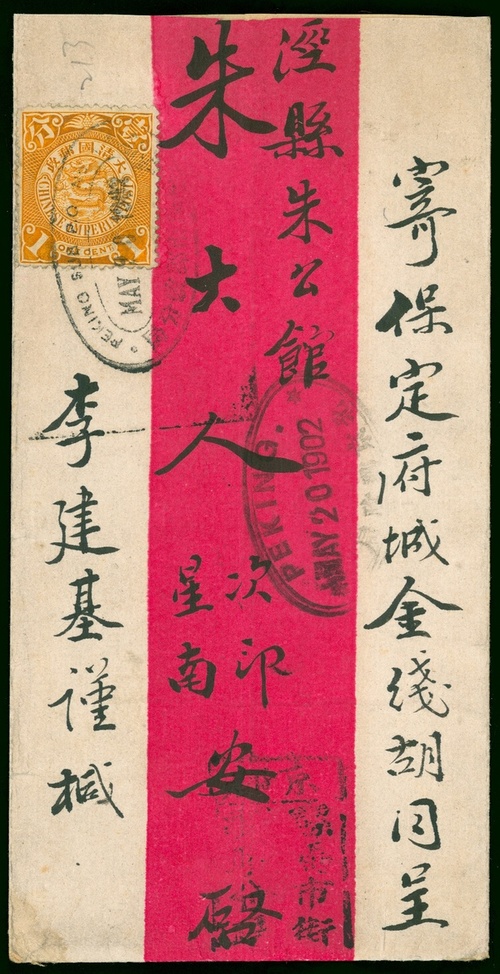 寄保定府城金綫胡同呈
涇縣朱公館
朱大人 次印星南 安啟
李建基謹械
大清國郵政
壹分
CHINESE IMPERIAL
1 ONE CENT 1
PEKING
MAY 20
PEKING.
MAY 20 1902
市街